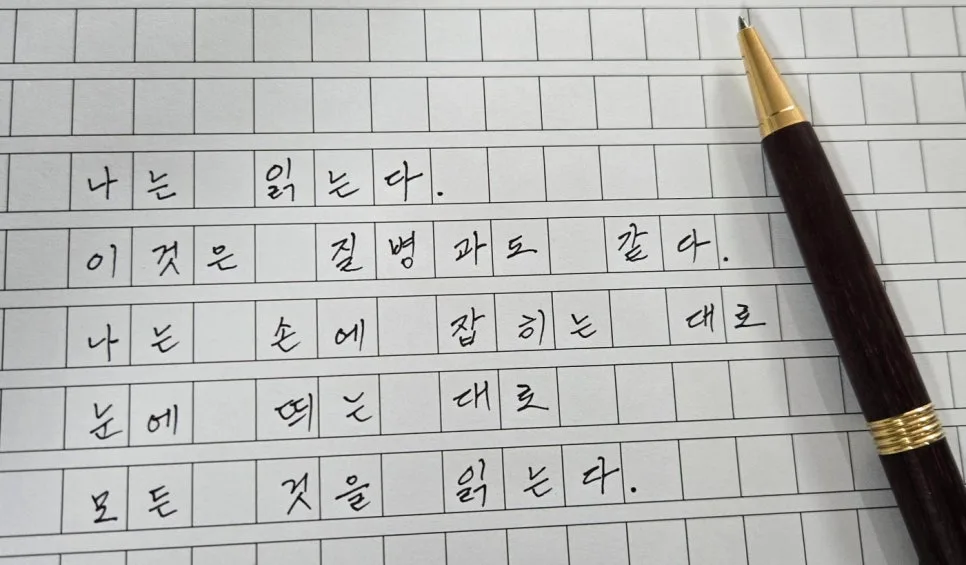 나는 읽는다.
이것은 질병과도 같다.
나는 손에 잡히는 대로
눈에 띄는 대로
모든 것을 읽는다.